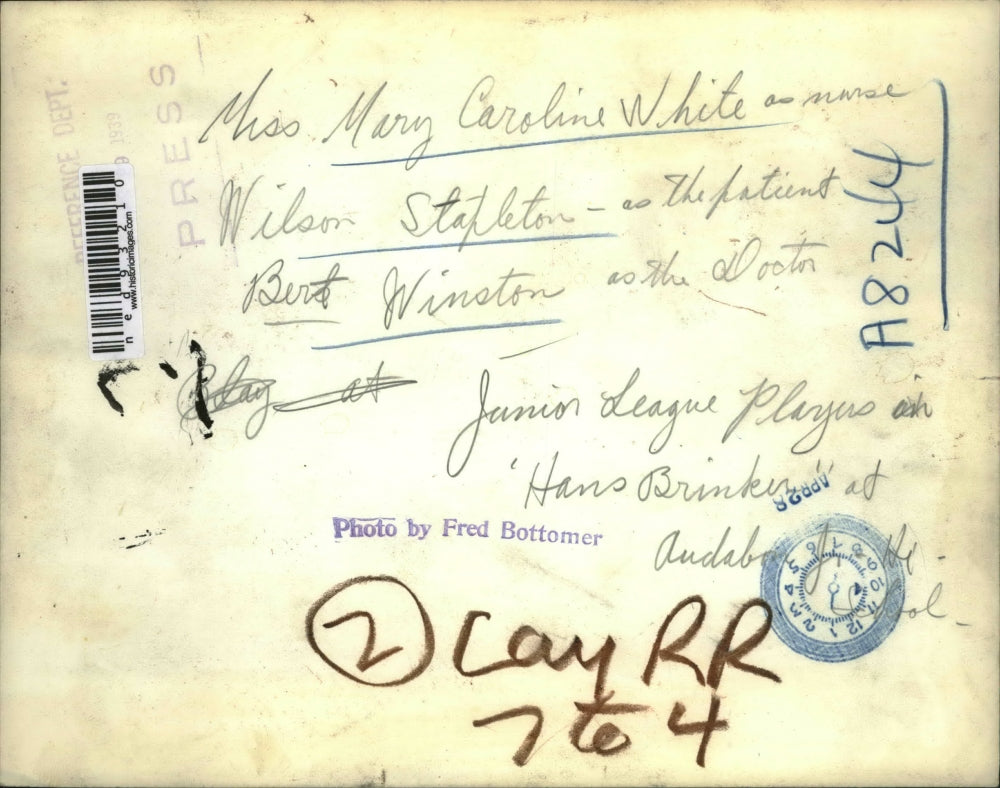 Miss Mary Caroline White as nurse
Wilson Stapleton - as the patient
Bert Winston as the Doctor
Play at
Junior League Players in
"Hans Brinker" at
Audabon Jr Hi-
School-
Photo by Fred Bottomer
② Lay RR
7 to 4
A8244
PRESS
REFERENCE DEPT.
1939
APR 28
1 2 3 4 5 6 7 8 9 10 11 12
ned93210
www.historicimages.com